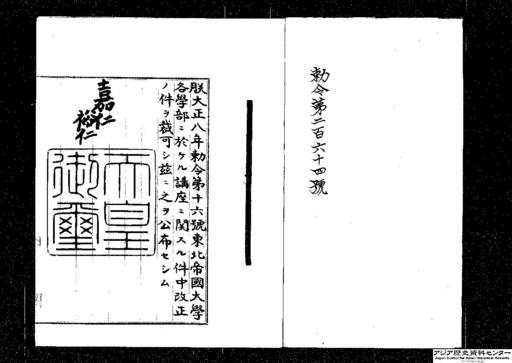 勅令第二百六十四號
朕大正八年勅令第十六號東北帝國大學
各學部ニ於ケル講座ニ關スル件中改正
ノ件ヲ裁可シ茲ニ之ヲ公布セシム
嘉仁
裕仁
天皇
御璽
アジア歴史資料センター
Japan Center for Asian Historical Records